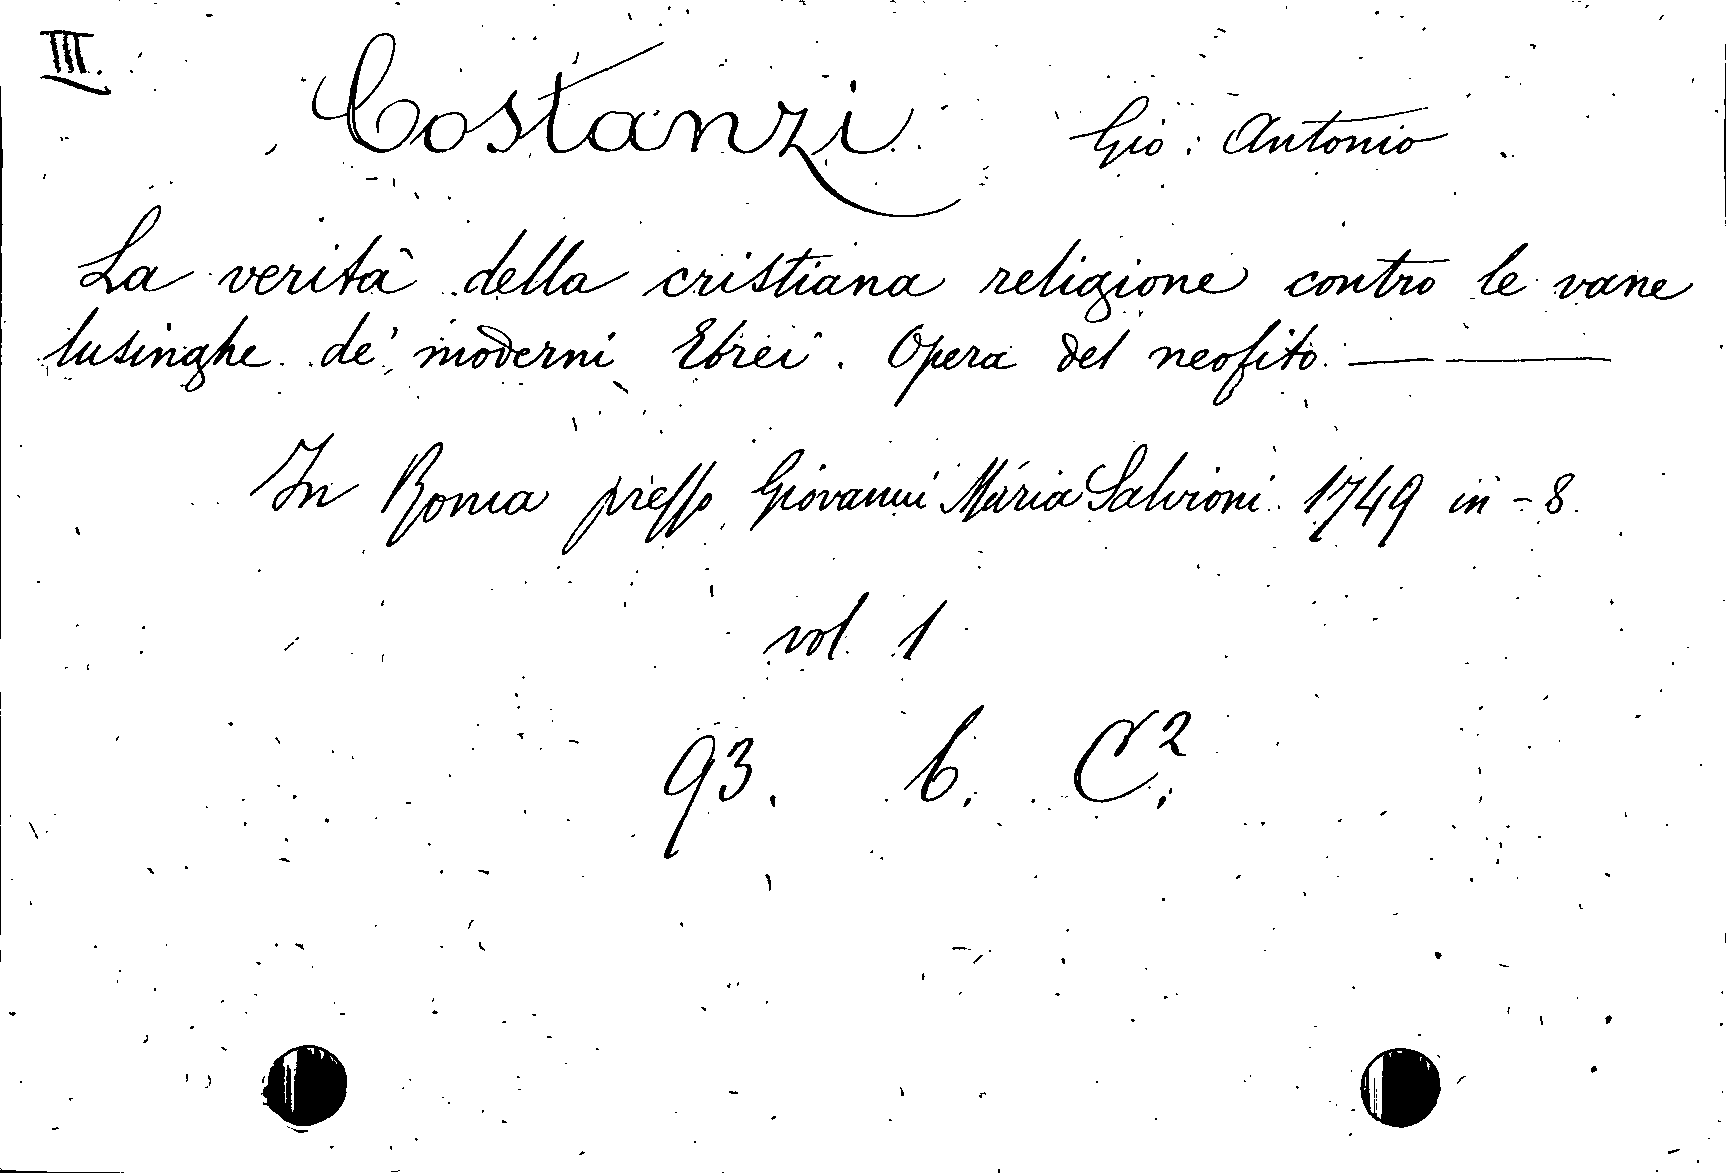 III.
Costanzi Gio: Antonio
La verità della cristiana religione contro le vane
lusinghe de' moderni Ebrei. Opera del neofito. — —
In Roma presso Giovanni Maria Salvioni 1749 in-8
vol. 1
93. b. C².